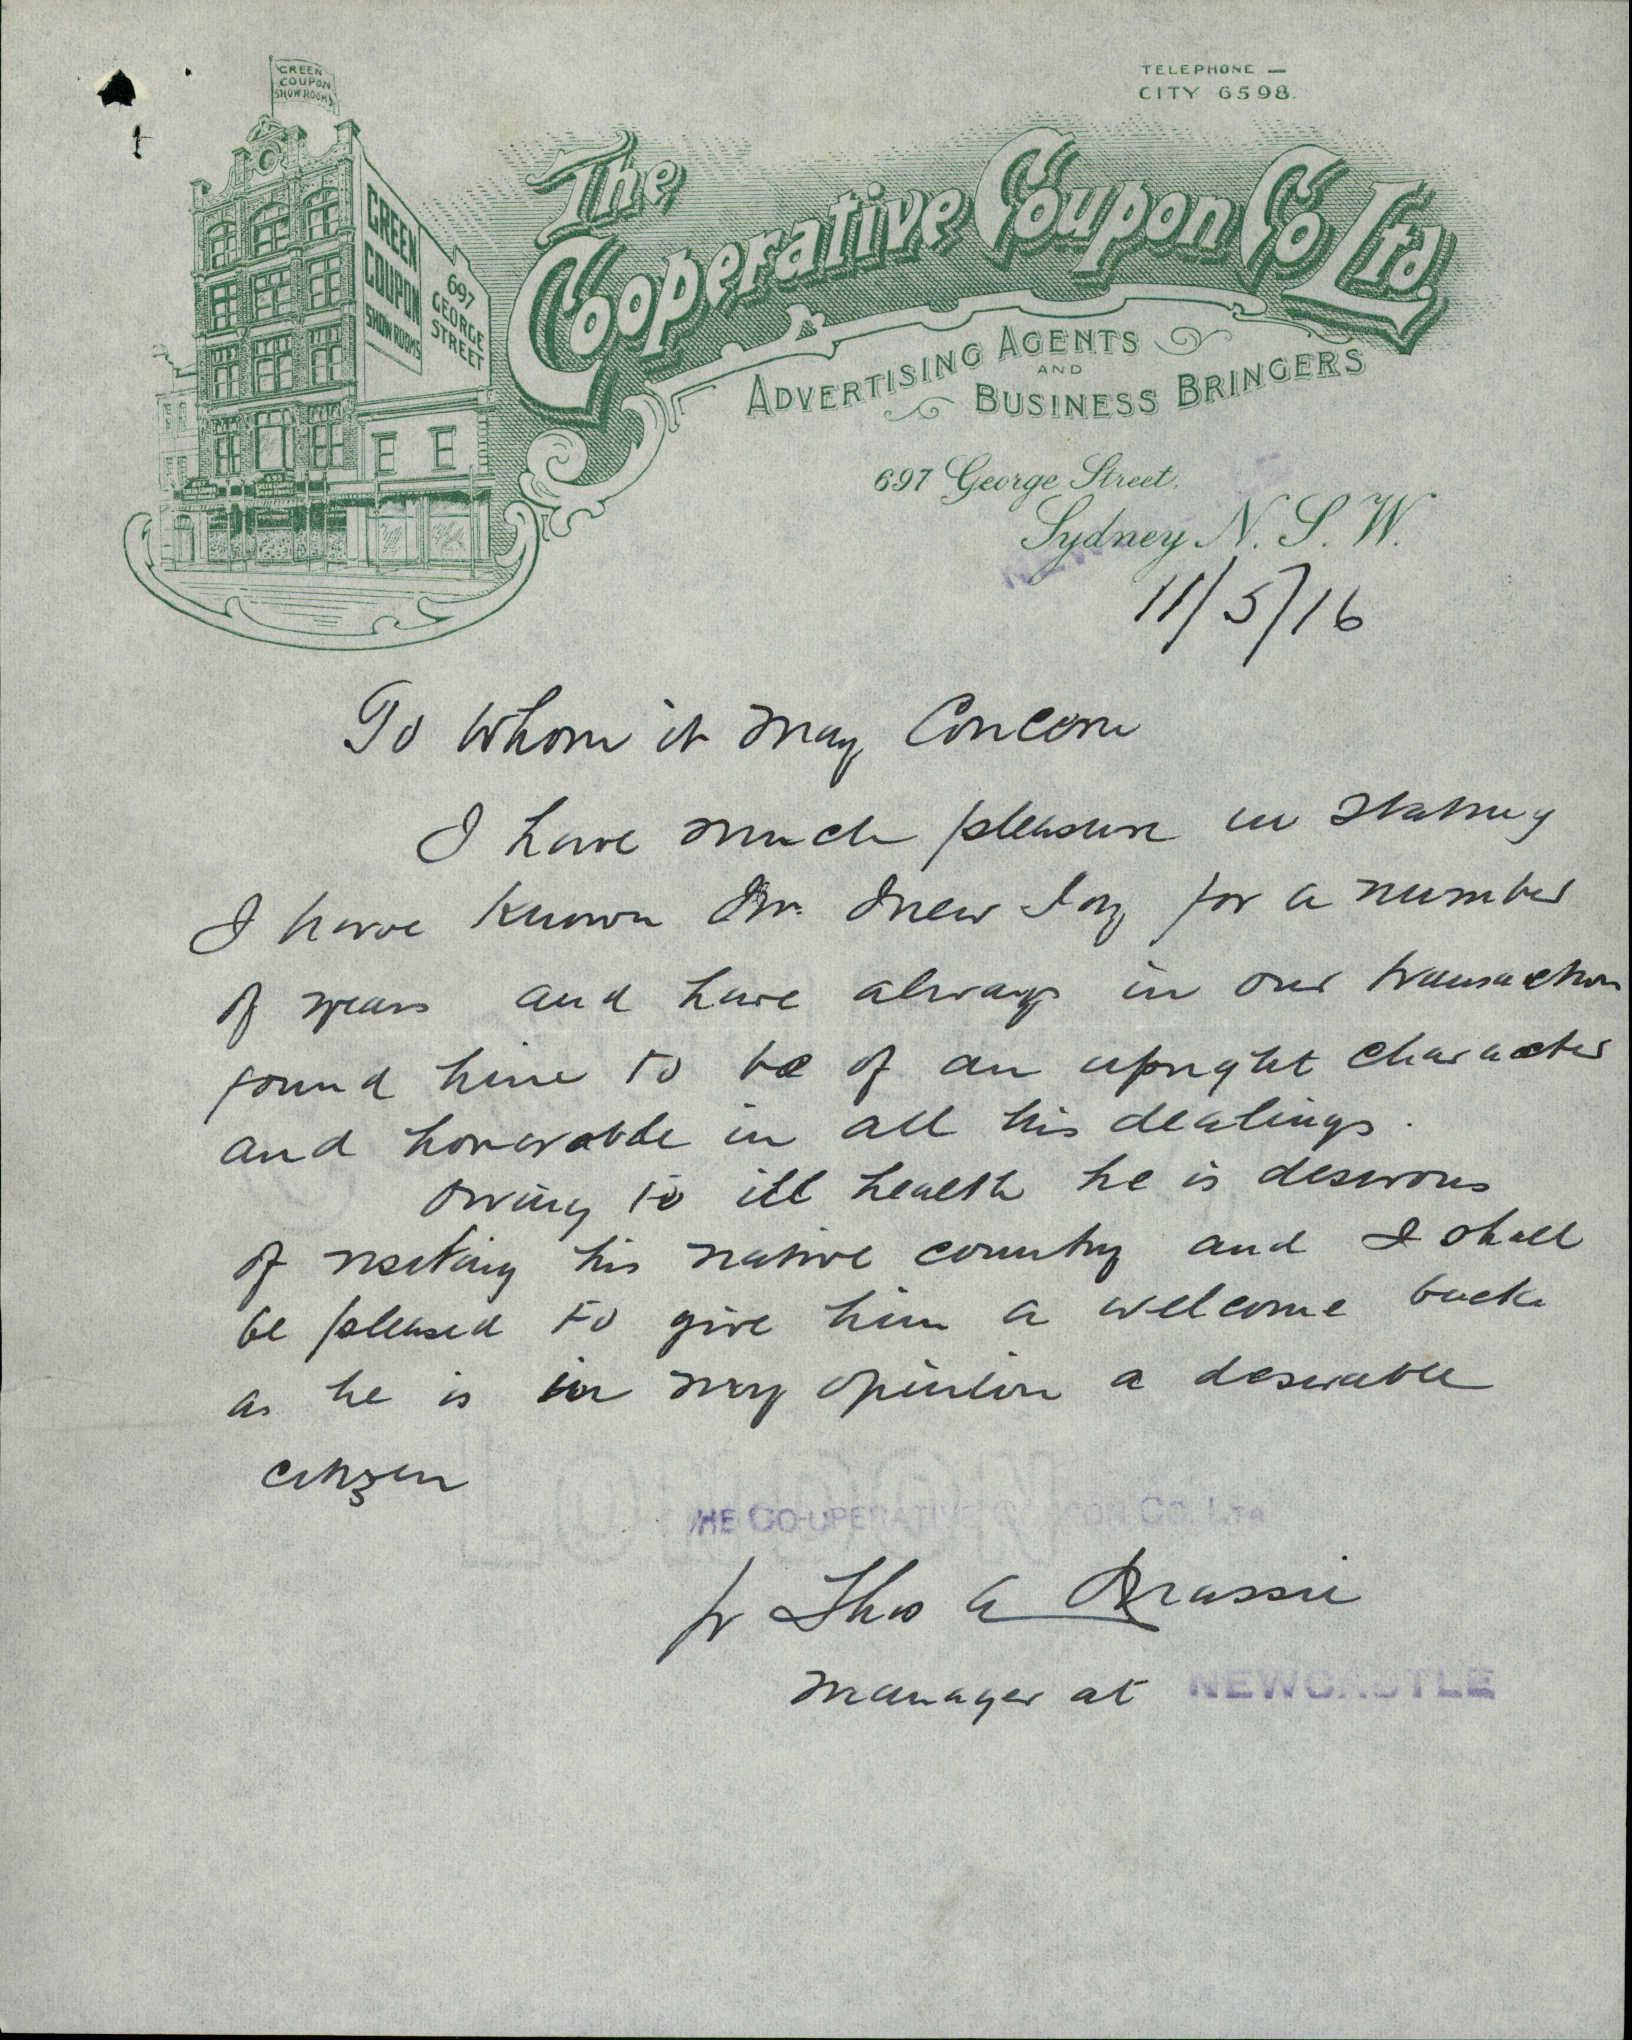 GREEN
COUPON
SHOW ROOMS
TELEPHONE —
CITY 6598.
The
Cooperative Coupon Co Ltd.
GREEN
COUPON
SHOW ROOMS
697
GEORGE
STREET
ADVERTISING AGENTS
AND
BUSINESS BRINGERS
697 George Street.
Sydney N. S. W.
11/5/16
To Whom it may Concern
I have much pleasure in stating
I have known Mr. for a number
of years and have always in our transaction
found him to be of an upright character
and honorable in all his dealings.
Owing to ill health he is desirous
of visiting his native country and I shall
be pleased to give him a welcome back
as he is in my opinion a desirable
citizen
THE CO-OPERATIVE COUPON CO. LTD
pr Thos A
Manager at NEWCASTLE